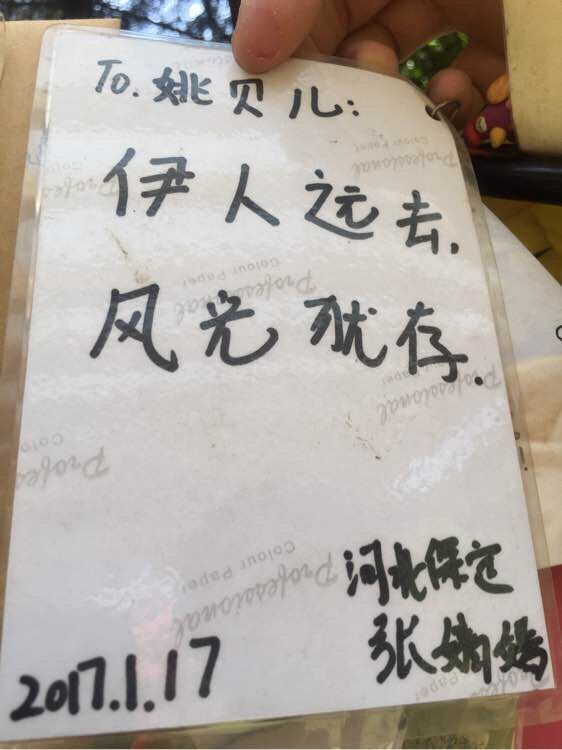 To.姚贝儿:
伊人远去,
风光犹存.
河北保定
张嫡嫡
2017.1.17
Professional
Colour Paper
Professional
Colour Paper
Professional
Professional
Colour Paper